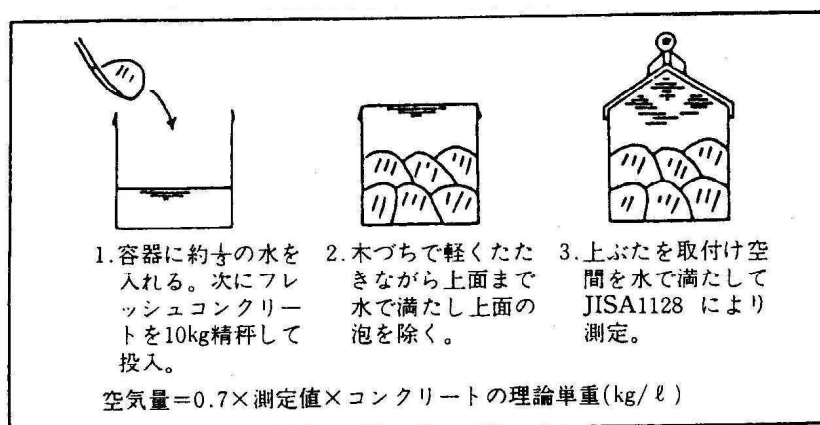 1.容器に約⅓の水を
入れる。次にフレ
ッシュコンクリー
トを10kg精秤して
投入。
2.木づちで軽くたた
きながら上面まで
水で満たし上面の
泡を除く。
3.上ぶたを取付け空
間を水で満たして
JISA1128 により
測定。
空気量=0.7×測定値×コンクリートの理論単重(kg/ℓ)